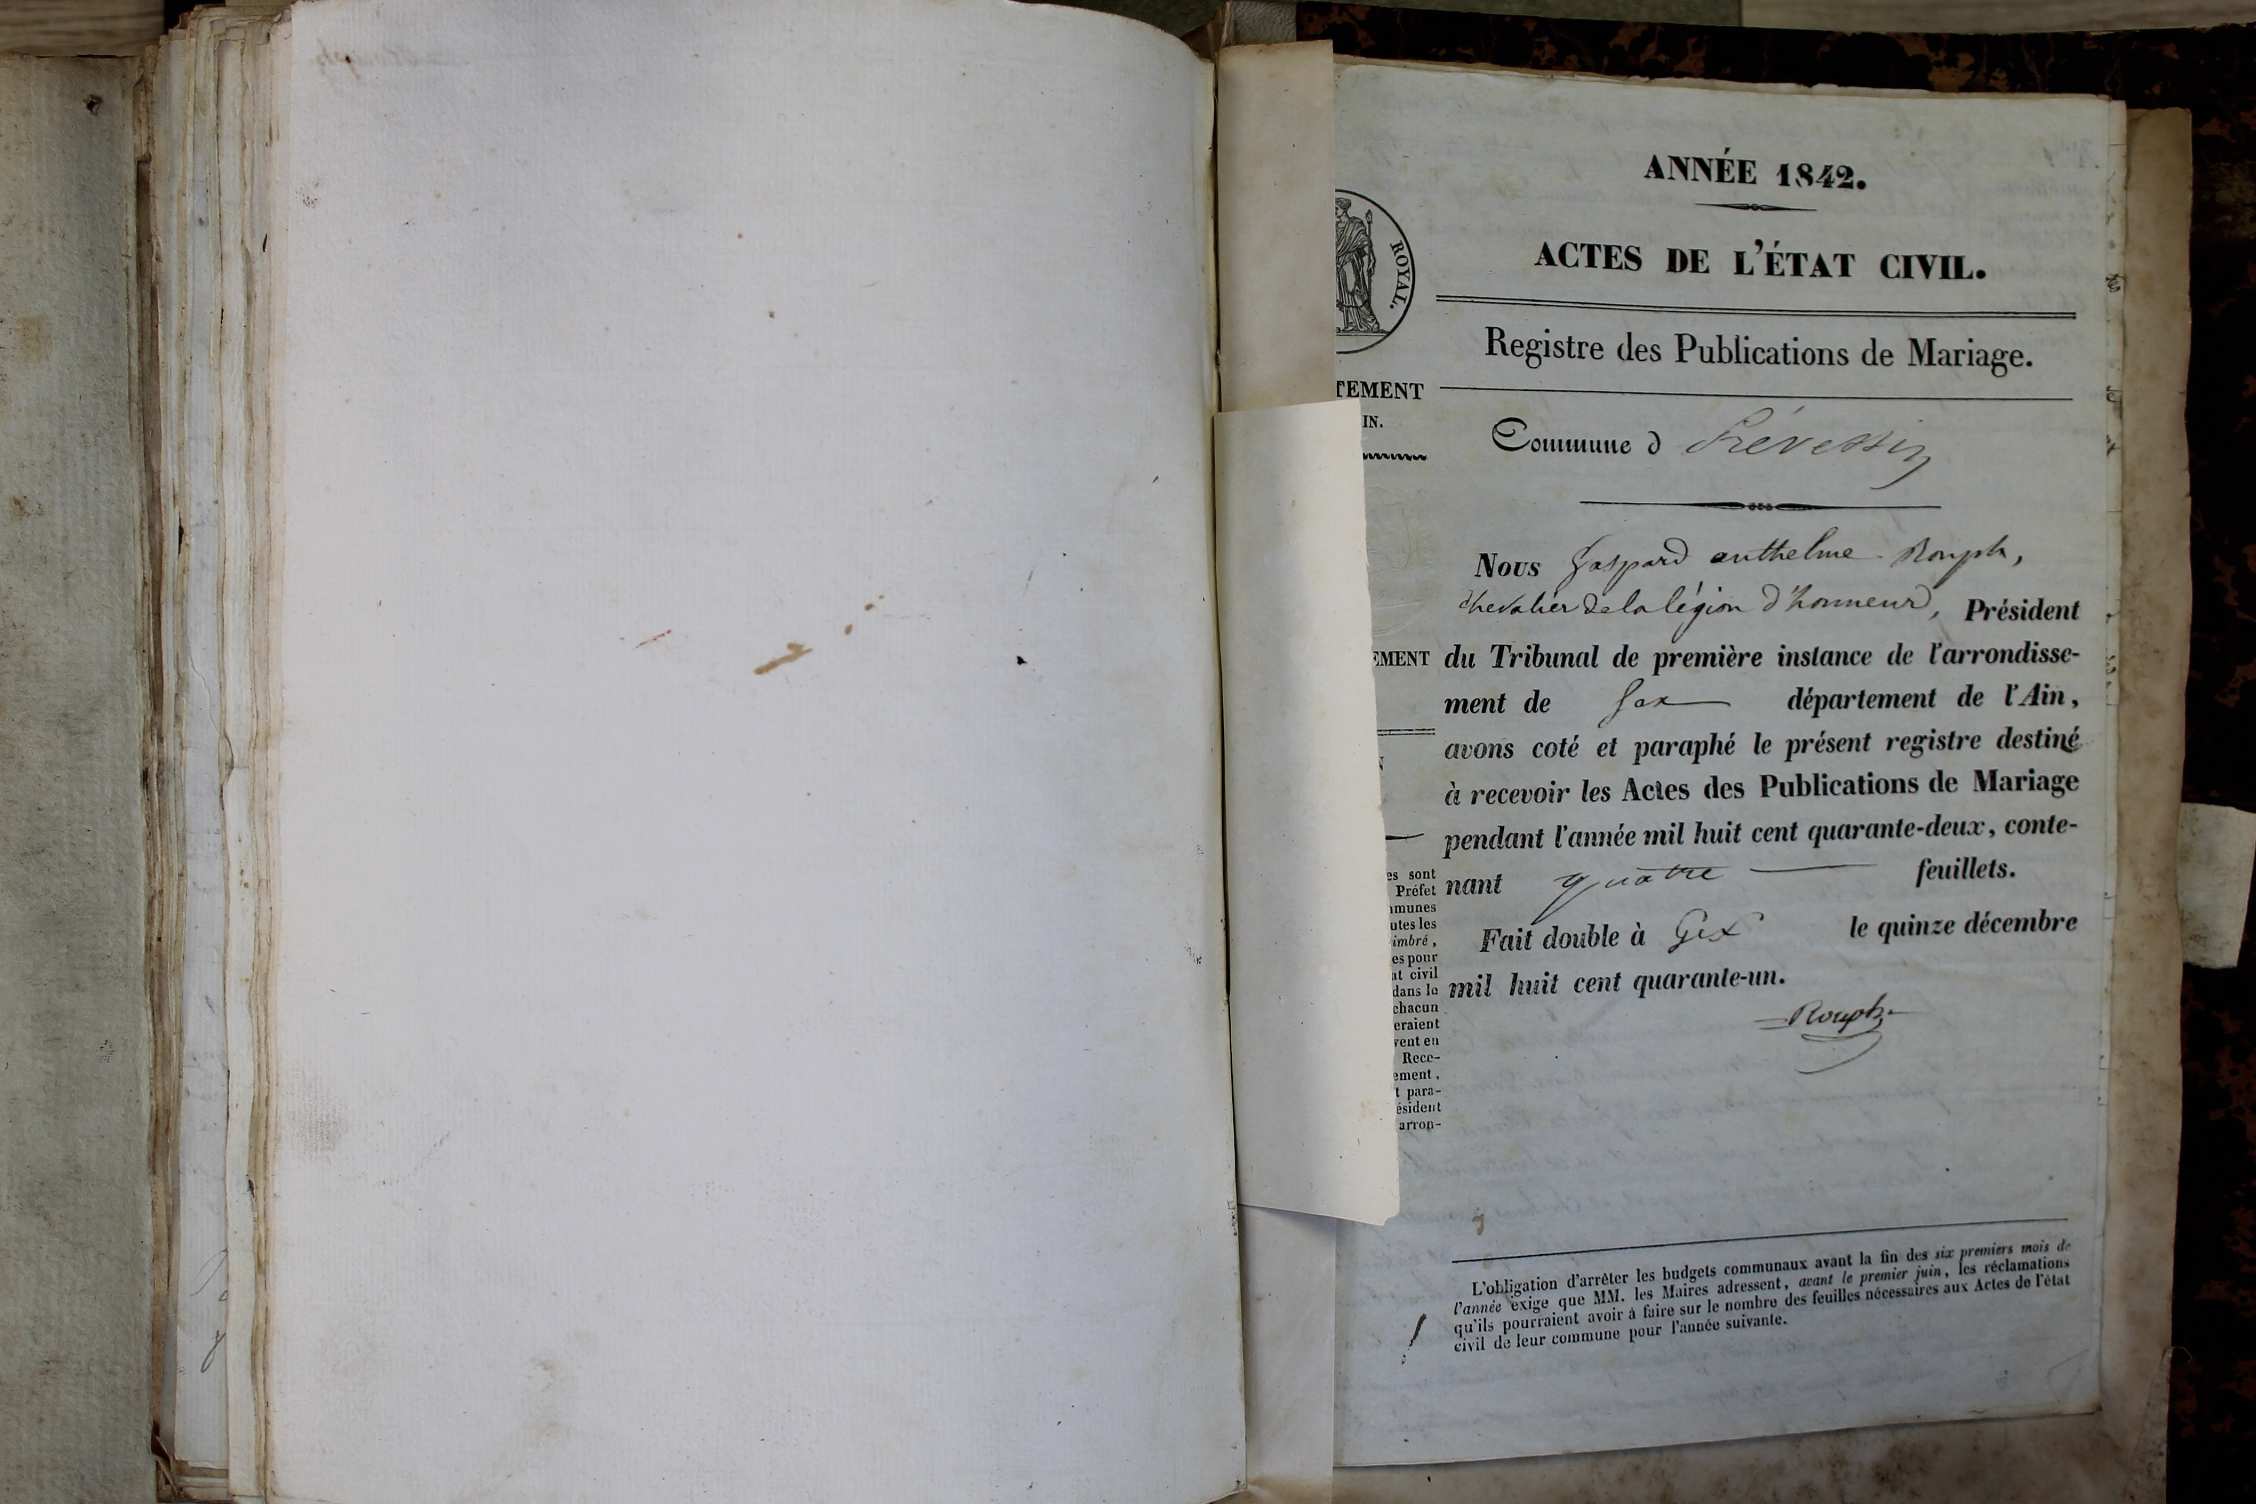 ANNÉE 1842.
ACTES DE L'ÉTAT CIVIL.
ROYAL.
Registre des Publications de Mariage.
TEMENT
IN.
Commune d Prévessin
Nous Gaspard anthelme Rouph,
chevalier de la légion d'honneur, Président
EMENT
du Tribunal de première instance de l'arrondisse-
ment de Gex département de l'Ain,
avons coté et paraphé le présent registre destiné
N
à recevoir les Actes des Publications de Mariage
pendant l'année mil huit cent quarante-deux, conte-
nant quatre feuillets.
Fait double à Gex le quinze décembre
mil huit cent quarante-un.
Rouph
es sont
Préfet
mmunes
utes les
imbré,
es pour
at civil
dans le
chacun
eraient
vent en
Rece-
ement,
t para-
ésident
arron-
L'obligation d'arrêter les budgets communaux avant la fin des six premiers mois de
l'année exige que MM. les Maires adressent, avant le premier juin, les réclamations
qu'ils pourraient avoir à faire sur le nombre des feuilles nécessaires aux Actes de l'état
civil de leur commune pour l'année suivante.